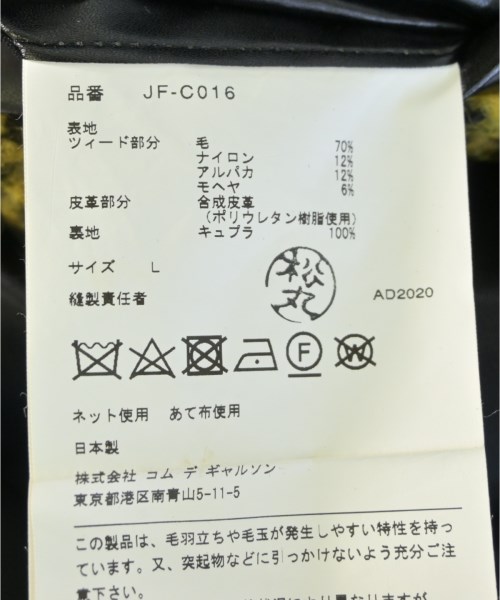 品番 JF-C016
表地
ツィード部分 毛 70%
ナイロン 12%
アルパカ 12%
モヘヤ 6%
皮革部分 合成皮革
(ポリウレタン樹脂使用)
裏地 キュプラ 100%
サイズ L
縫製責任者 松丸 AD2020
F W
ネット使用 あて布使用
日本製
株式会社 コム デ ギャルソン
東京都港区南青山5-11-5
この製品は、毛羽立ちや毛玉が発生しやすい特性を持っ
ています。又、突起物などに引っかけないよう充分ご注
意下さい。